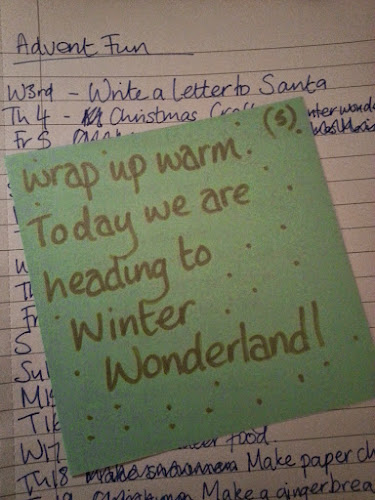 Advent Fun
W3rd - Write a letter to Santa
Th 4 - Christmas
Fr 5
(S)
Wrap up warm.
Today we are
heading to
Winter
Wonderland!
W
Th
Fr
S
Su
M15
T16
W17 food.
Th18 Make paper ch
Make a gingerbrea